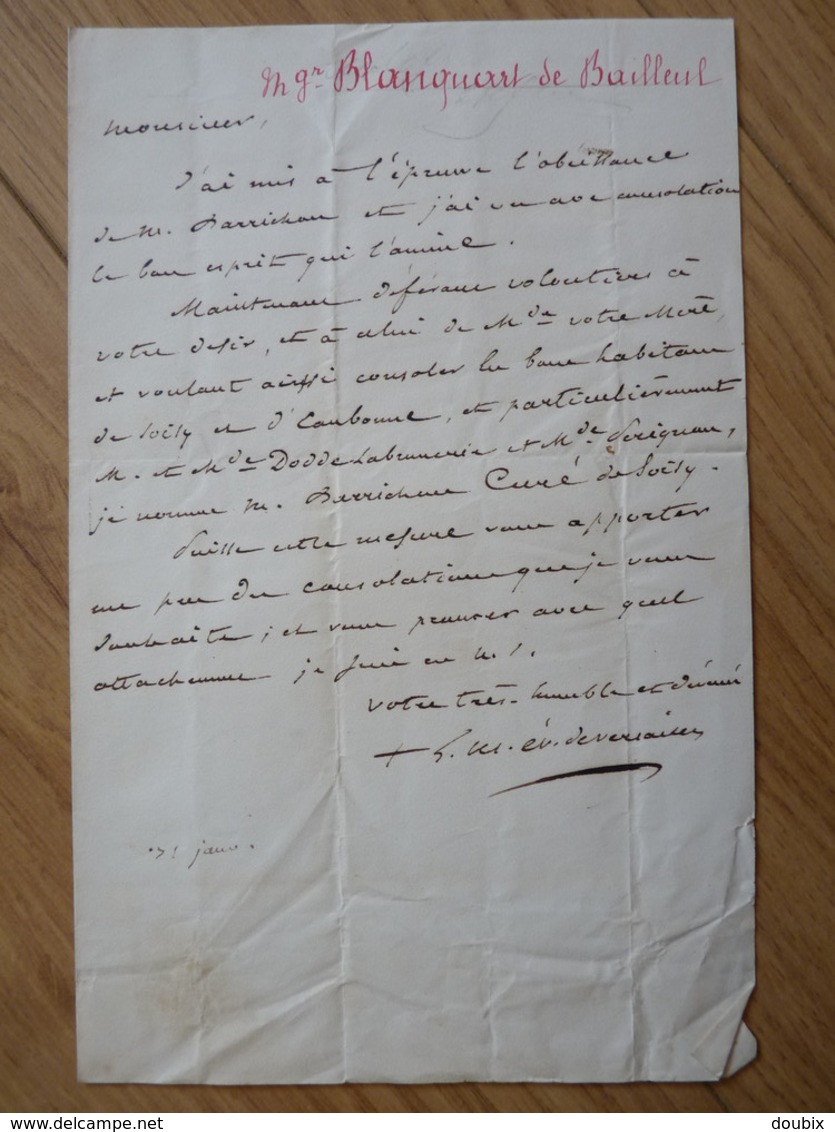 Mgr Blanquart de Bailleul
Monsieur,
J'ai mis à l'épreuve l'obéissance
de M. Barrichon et j'ai vu avec consolation
le bon esprit qui l'anime.
Maintenant déférant volontiers à
votre desir, et à celui de Mde votre Mère,
et voulant aussi consoler les bons habitans
de Soisy et d'Eaubonne, et particulièrement
M. et Mde Dodde Labrunnerie et Mde Sérignan,
je nomme M. Barrichon Curé de Soisy.
Puisse cette mesure vous apporter
un peu des consolations que je vous
souhaite, et vous prouver avec quel
attachement je suis en N. S.
votre très-humble et dévoué
+ L. M. év. de versailles
31 janv.
delcampe.net
doubix